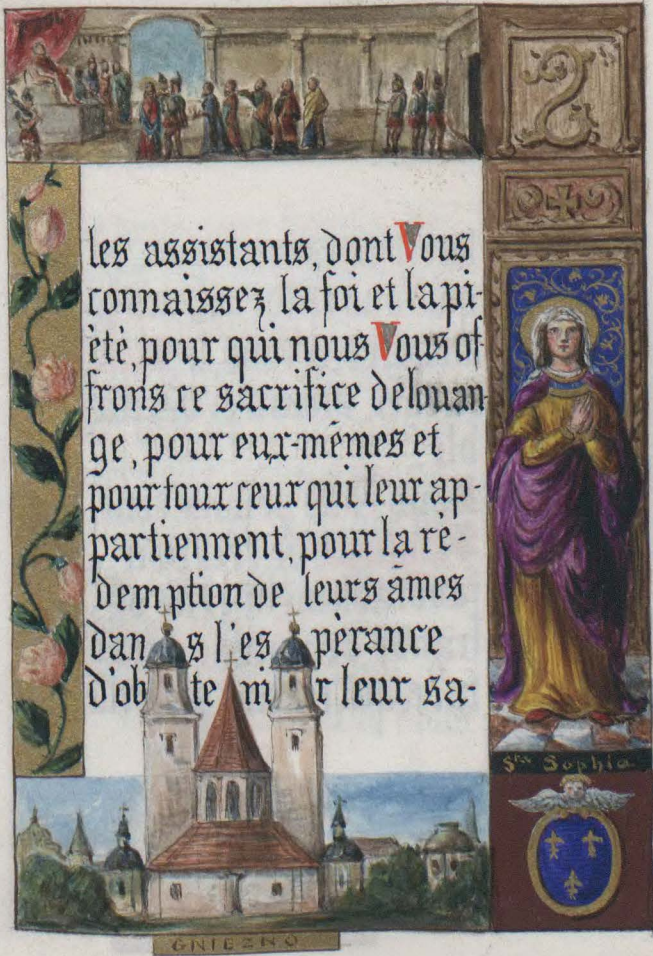 les assistants, dont Vous
connaissez la foi et la pi-
été, pour qui nous Vous of
frons ce sacrifice de louan-
ge, pour eux-mêmes et
pour toux ceux qui leur ap-
partiennent, pour la ré-
demption de leurs âmes
dans l'espérance
d'obtenir leur sa-
Sta Sophia
GNIEZNO